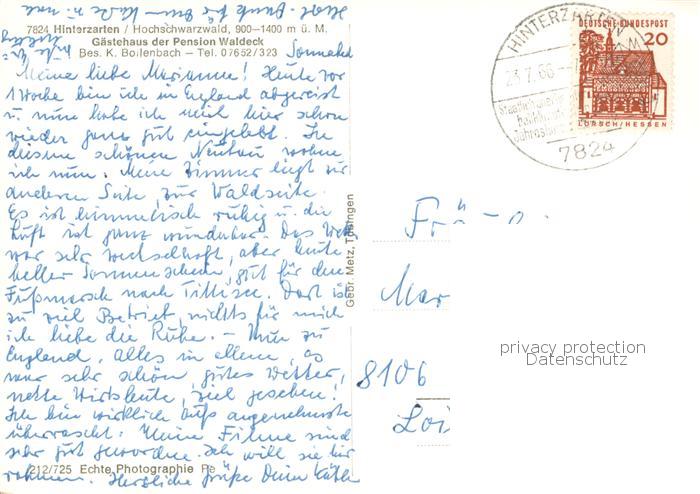 Herzl. Dank für Deine Karte u. neue
7824 Hinterzarten / Hochschwarzwald, 900—1400 m ü. M.
Gästehaus der Pension Waldeck
Bes. K. Boilenbach — Tel. 07652/323
Sonnabend
Meine liebe Marianne! Heute vor
1 Woche bin ich in England abgereist
u. nun habe ich mich hier schon
wieder ganz gut eingelebt. In
diesem schönen Neubau wohne
ich nun. Mein Zimmer liegt zur
anderen Seite, zur Waldseite.
Es ist himmlisch ruhig u. die
Luft ist ganz wunderbar. Das Wetter
war sehr wechselhaft, aber heute
heller Sonnenschein, gut für den
Fußmarsch nach Titisee. Dort ist
zu viel Betrieb, nichts für mich
ich liebe die Ruhe. — Nun zu
England. Alles in allem, es
war sehr schön, gutes Wetter,
nette Wirtsleute, viel gesehen!
Ich bin wirklich aufs angenehmste
überrascht. Meine Filme sind
sehr gut geworden. Ich will sie hier
rahmen. Herzliche Grüße Deine Käthe
212/725 Echte Photographie
Gebr. Metz, Tübingen
HINTERZARTEN
23.7.66
7824
DEUTSCHE BUNDESPOST
20
LORSCH/HESSEN
Mar
8106
Loi
privacy protection
Datenschutz